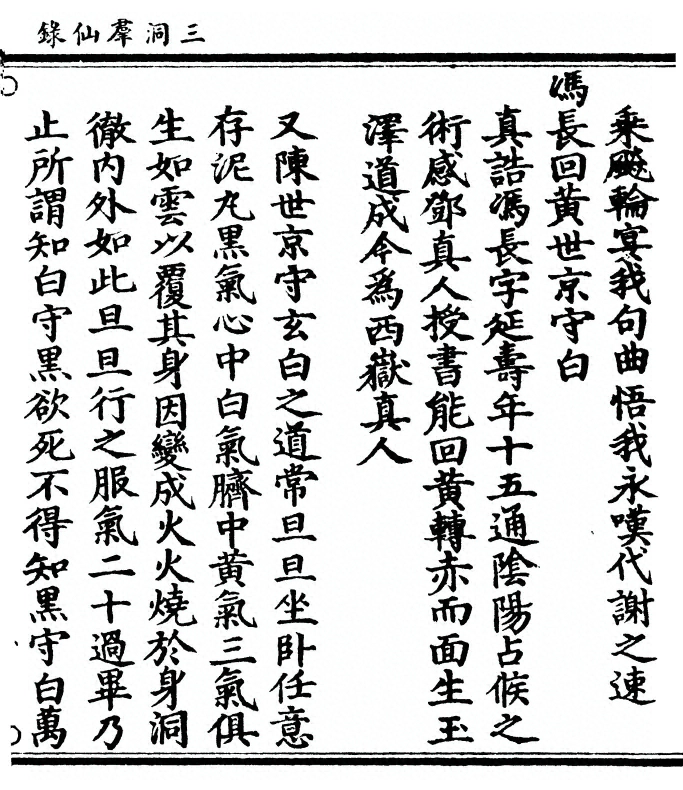 三洞羣仙錄
乘飈輪宴我句曲悟我永嘆代謝之速
馮長回黃世京守白
真誥馮長字延壽年十五通陰陽占候之
術感鄧真人授書能回黃轉赤而面生玉
澤道成今為西嶽真人
又陳世京守玄白之道常旦旦坐卧任意
存泥丸黑氣心中白氣臍中黃氣三氣俱
生如雲以覆其身因變成火火燒於身洞
徹內外如此旦旦行之服氣二十過畢乃
止所謂知白守黑欲死不得知黑守白萬